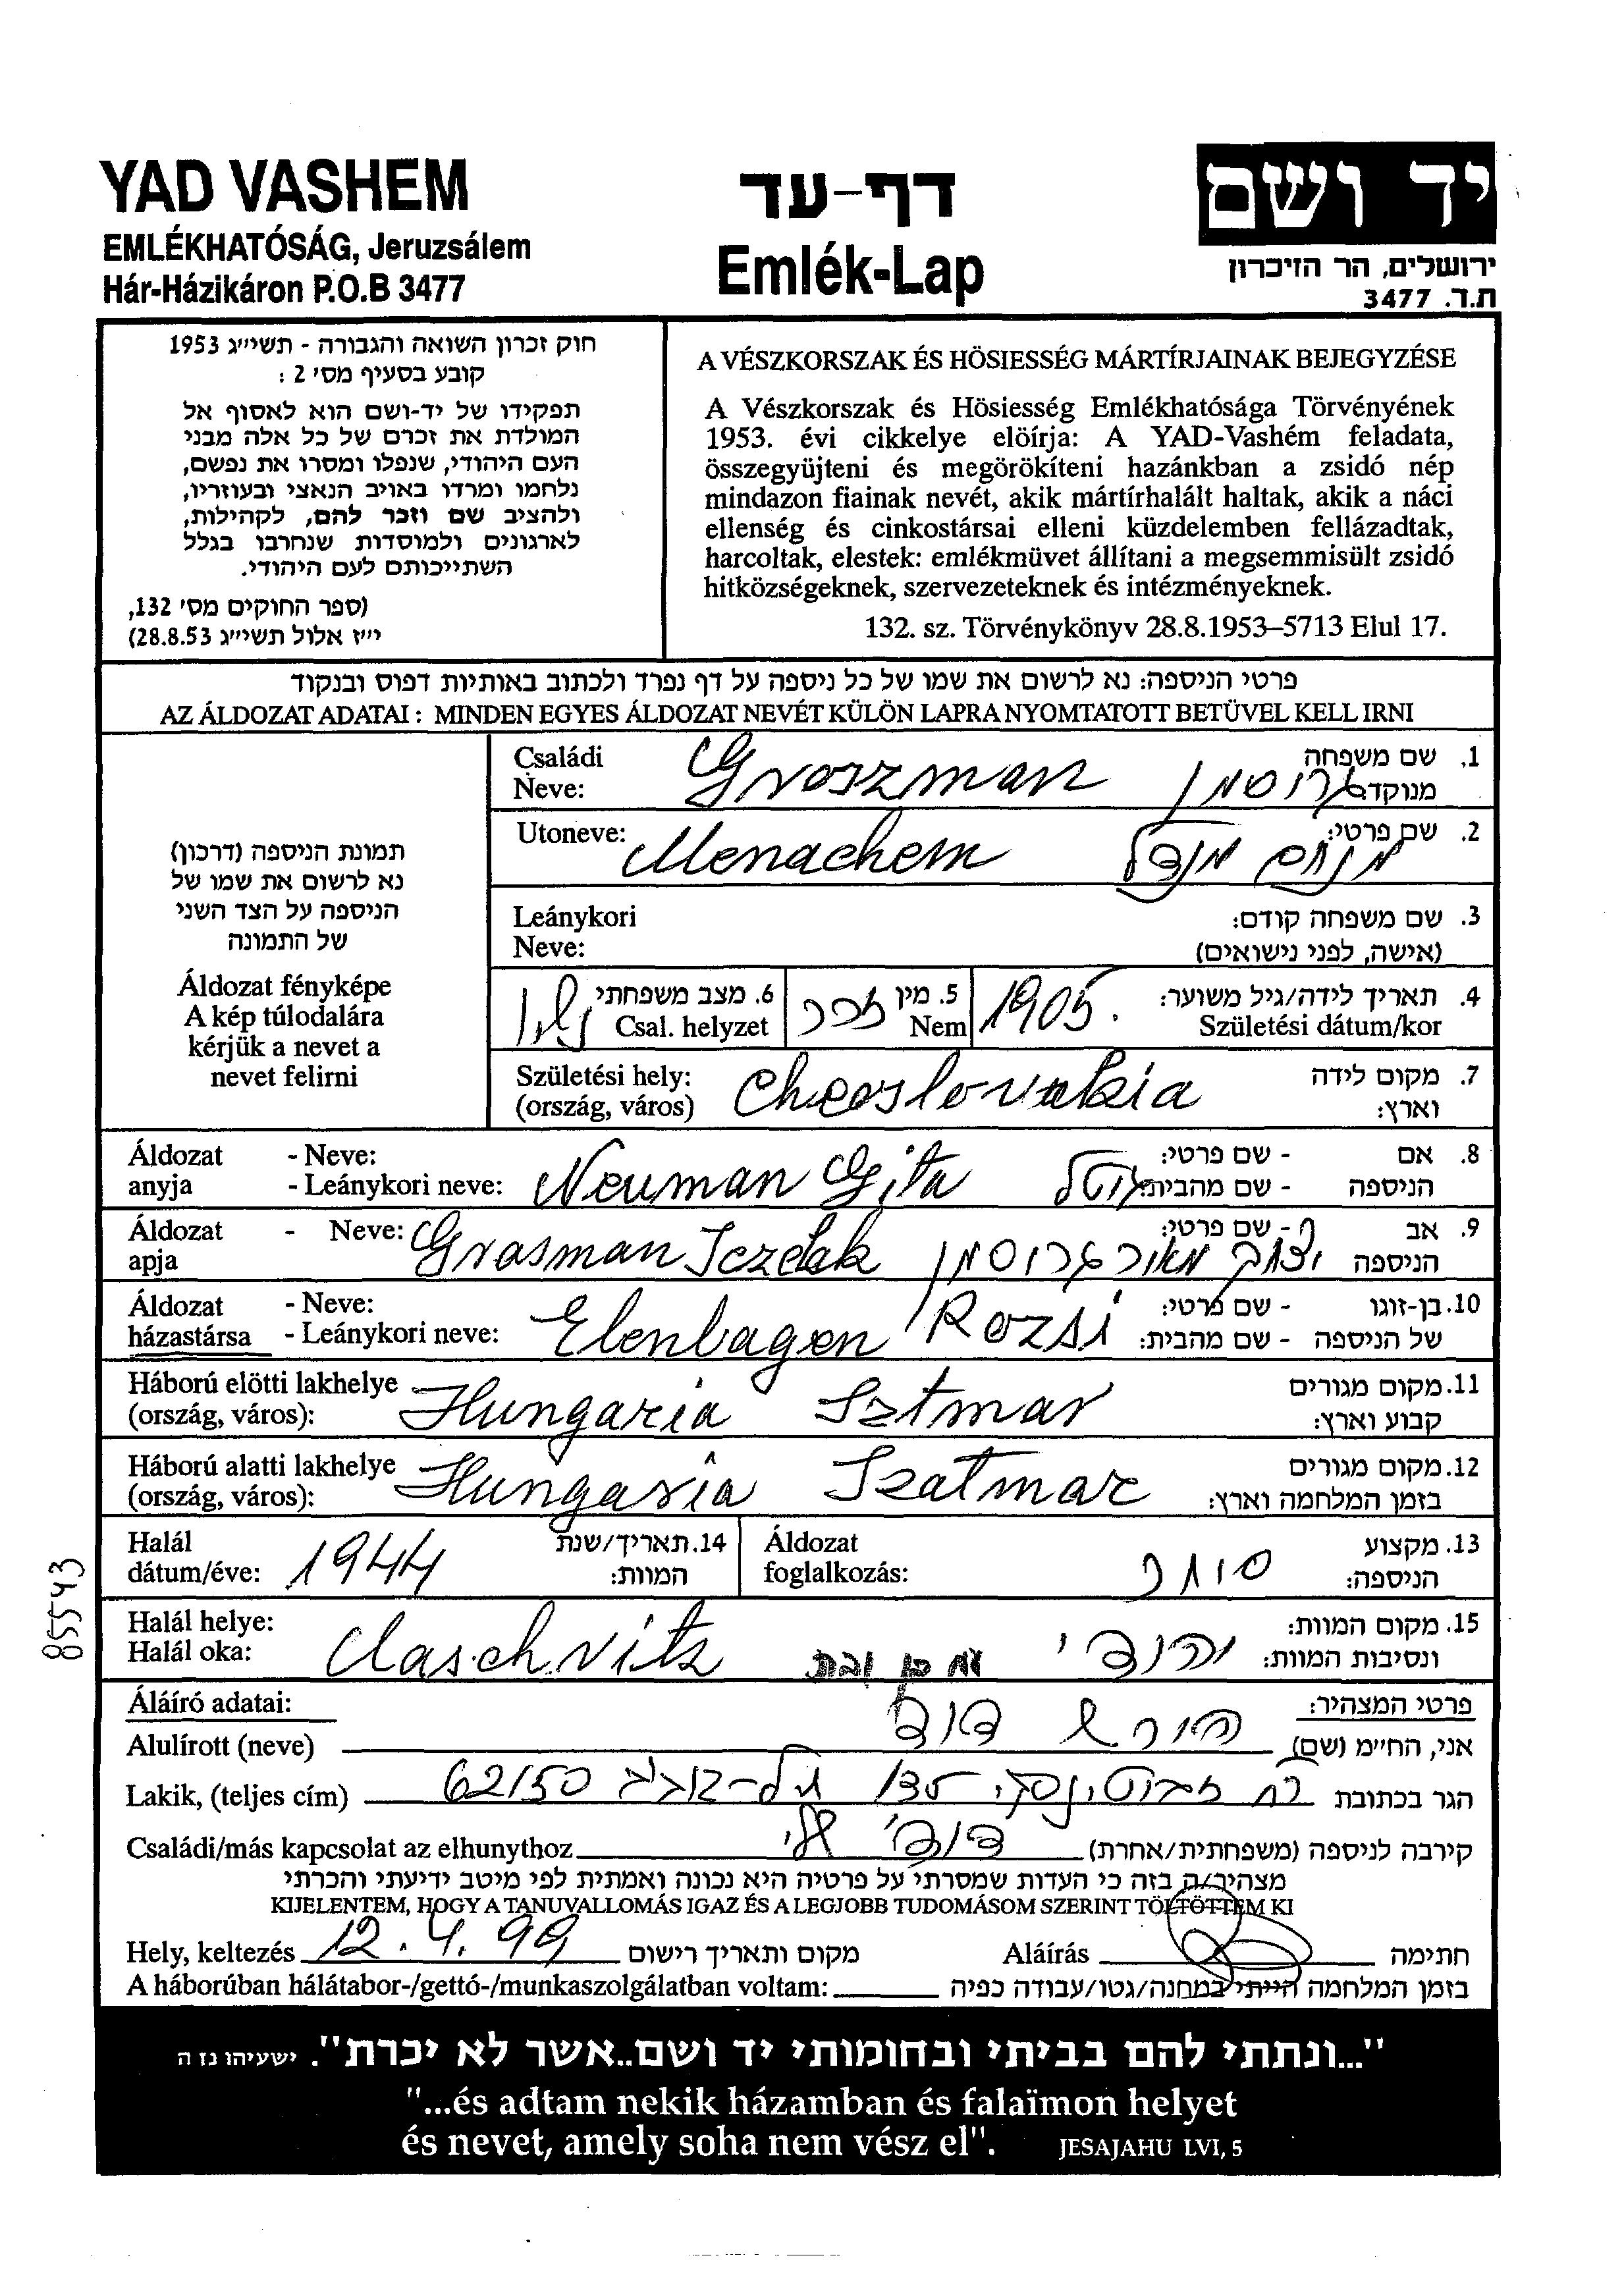 YAD VASHEM
EMLÉKHATÓSÁG, Jeruzsálem
Hár-Házikáron P.O.B 3477
דף-עד
Emlék-Lap
יד ושם
ירושלים, הר הזיכרון
ת.ד. 3477
חוק זכרון השואה והגבורה - תשי״ג 1953
קובע בסעיף מס' 2 :
תפקידו של יד-ושם הוא לאסוף אל
המולדת את זכרם של כל אלה מבני
העם היהודי, שנפלו ומסרו את נפשם,
נלחמו ומרדו באויב הנאצי ובעוזריו,
ולהציב שם וזכר להם, לקהילות,
לארגונים ולמוסדות שנחרבו בגלל
השתייכותם לעם היהודי.
(ספר החוקים מס' 132,
י״ז אלול תשי״ג 28.8.53)
A VÉSZKORSZAK ÉS HÖSIESSÉG MÁRTÍRJAINAK BEJEGYZÉSE
A Vészkorszak és Hösiesség Emlékhatósága Törvényének
1953. évi cikkelye elöírja: A YAD-Vashém feladata,
összegyüjteni és megörökíteni hazánkban a zsidó nép
mindazon fiainak nevét, akik mártírhalált haltak, akik a náci
ellenség és cinkostársai elleni küzdelemben fellázadtak,
harcoltak, elestek: emlékmüvet állítani a megsemmisült zsidó
hitközségeknek, szervezeteknek és intézményeknek.
132. sz. Törvénykönyv 28.8.1953–5713 Elul 17.
פרטי הניספה: נא לרשום את שמו של כל ניספה על דף נפרד ולכתוב באותיות דפוס ובנקוד
AZ ÁLDOZAT ADATAI : MINDEN EGYES ÁLDOZAT NEVÉT KÜLÖN LAPRA NYOMTATOTT BETÜVEL KELL IRNI
תמונת הניספה (דרכון)
נא לרשום את שמו של
הניספה על הצד השני
של התמונה
Áldozat fényképe
A kép túlodalára
kérjük a nevet a
nevet felirni
Családi
Neve: Groszman גרוסמן
1. שם משפחה
מנוקד:
Utoneve: Menachem מנחם מנדל
2. שם פרטי:
Leánykori
Neve:
3. שם משפחה קודם:
(אישה, לפני נישואים)
6. מצב משפחתי נשוי
Csal. helyzet
5. מין זכר
Nem
1905.
4. תאריך לידה/גיל משוער:
Születési dátum/kor
Születési hely:
(ország, város) Checslovakia
7. מקום לידה
וארץ:
Áldozat - Neve:
anyja - Leánykori neve: Neuman Gita גיטל
8. אם - שם פרטי:
הניספה - שם מהבית:
Áldozat - Neve: Grasman Iczchak יצחק מאיר גרוסמן
apja
9. אב - שם פרטי:
הניספה
Áldozat - Neve:
házastársa - Leánykori neve: Elenbagen Rozsi
10. בן-זוגו - שם פרטי:
של הניספה - שם מהבית:
Háború elötti lakhelye
(ország, város): Hungaria Sztmar
11. מקום מגורים
קבוע וארץ:
Háború alatti lakhelye
(ország, város): Hungaria Szatmar
12. מקום מגורים
בזמן המלחמה וארץ:
Halál
dátum/éve: 1944
14. תאריך/שנת
המוות:
Áldozat
foglalkozás: סוחר
13. מקצוע
הניספה:
85543
Halál helye:
Halál oka: Auschvitz יהודי
15. מקום המוות:
ונסיבות המוות:
Áláíró adatai:
פרטי המצהיר:
Alulírott (neve) דוד
אני, החי״מ (שם)
Lakik, (teljes cím) רח ז׳בוטינסקי 135 תל-אביב 62150
הגר בכתובת
Családi/más kapcsolat az elhunythoz דודי
קירבה לניספה (משפחתית/אחרת)
מצהיר/ה בזה כי העדות שמסרתי על פרטיה היא נכונה ואמתית לפי מיטב ידיעתי והכרתי
KIJELENTEM, HOGY A TANUVALLOMÁS IGAZ ÉS A LEGJOBB TUDOMÁSOM SZERINT TÖLTÖTTEM KI
Hely, keltezés 12.4.99 מקום ותאריך רישום
Aláírás חתימה
A háborúban hálátabor-/gettó-/munkaszolgálatban voltam: בזמן המלחמה הייתי במחנה/גטו/עבודה כפיה
"...ונתתי להם בביתי ובחומותי יד ושם..אשר לא יכרת". ישעיהו נז ה
"...és adtam nekik házamban és falaïmon helyet
és nevet, amely soha nem vész el". JESAJAHU LVI, 5